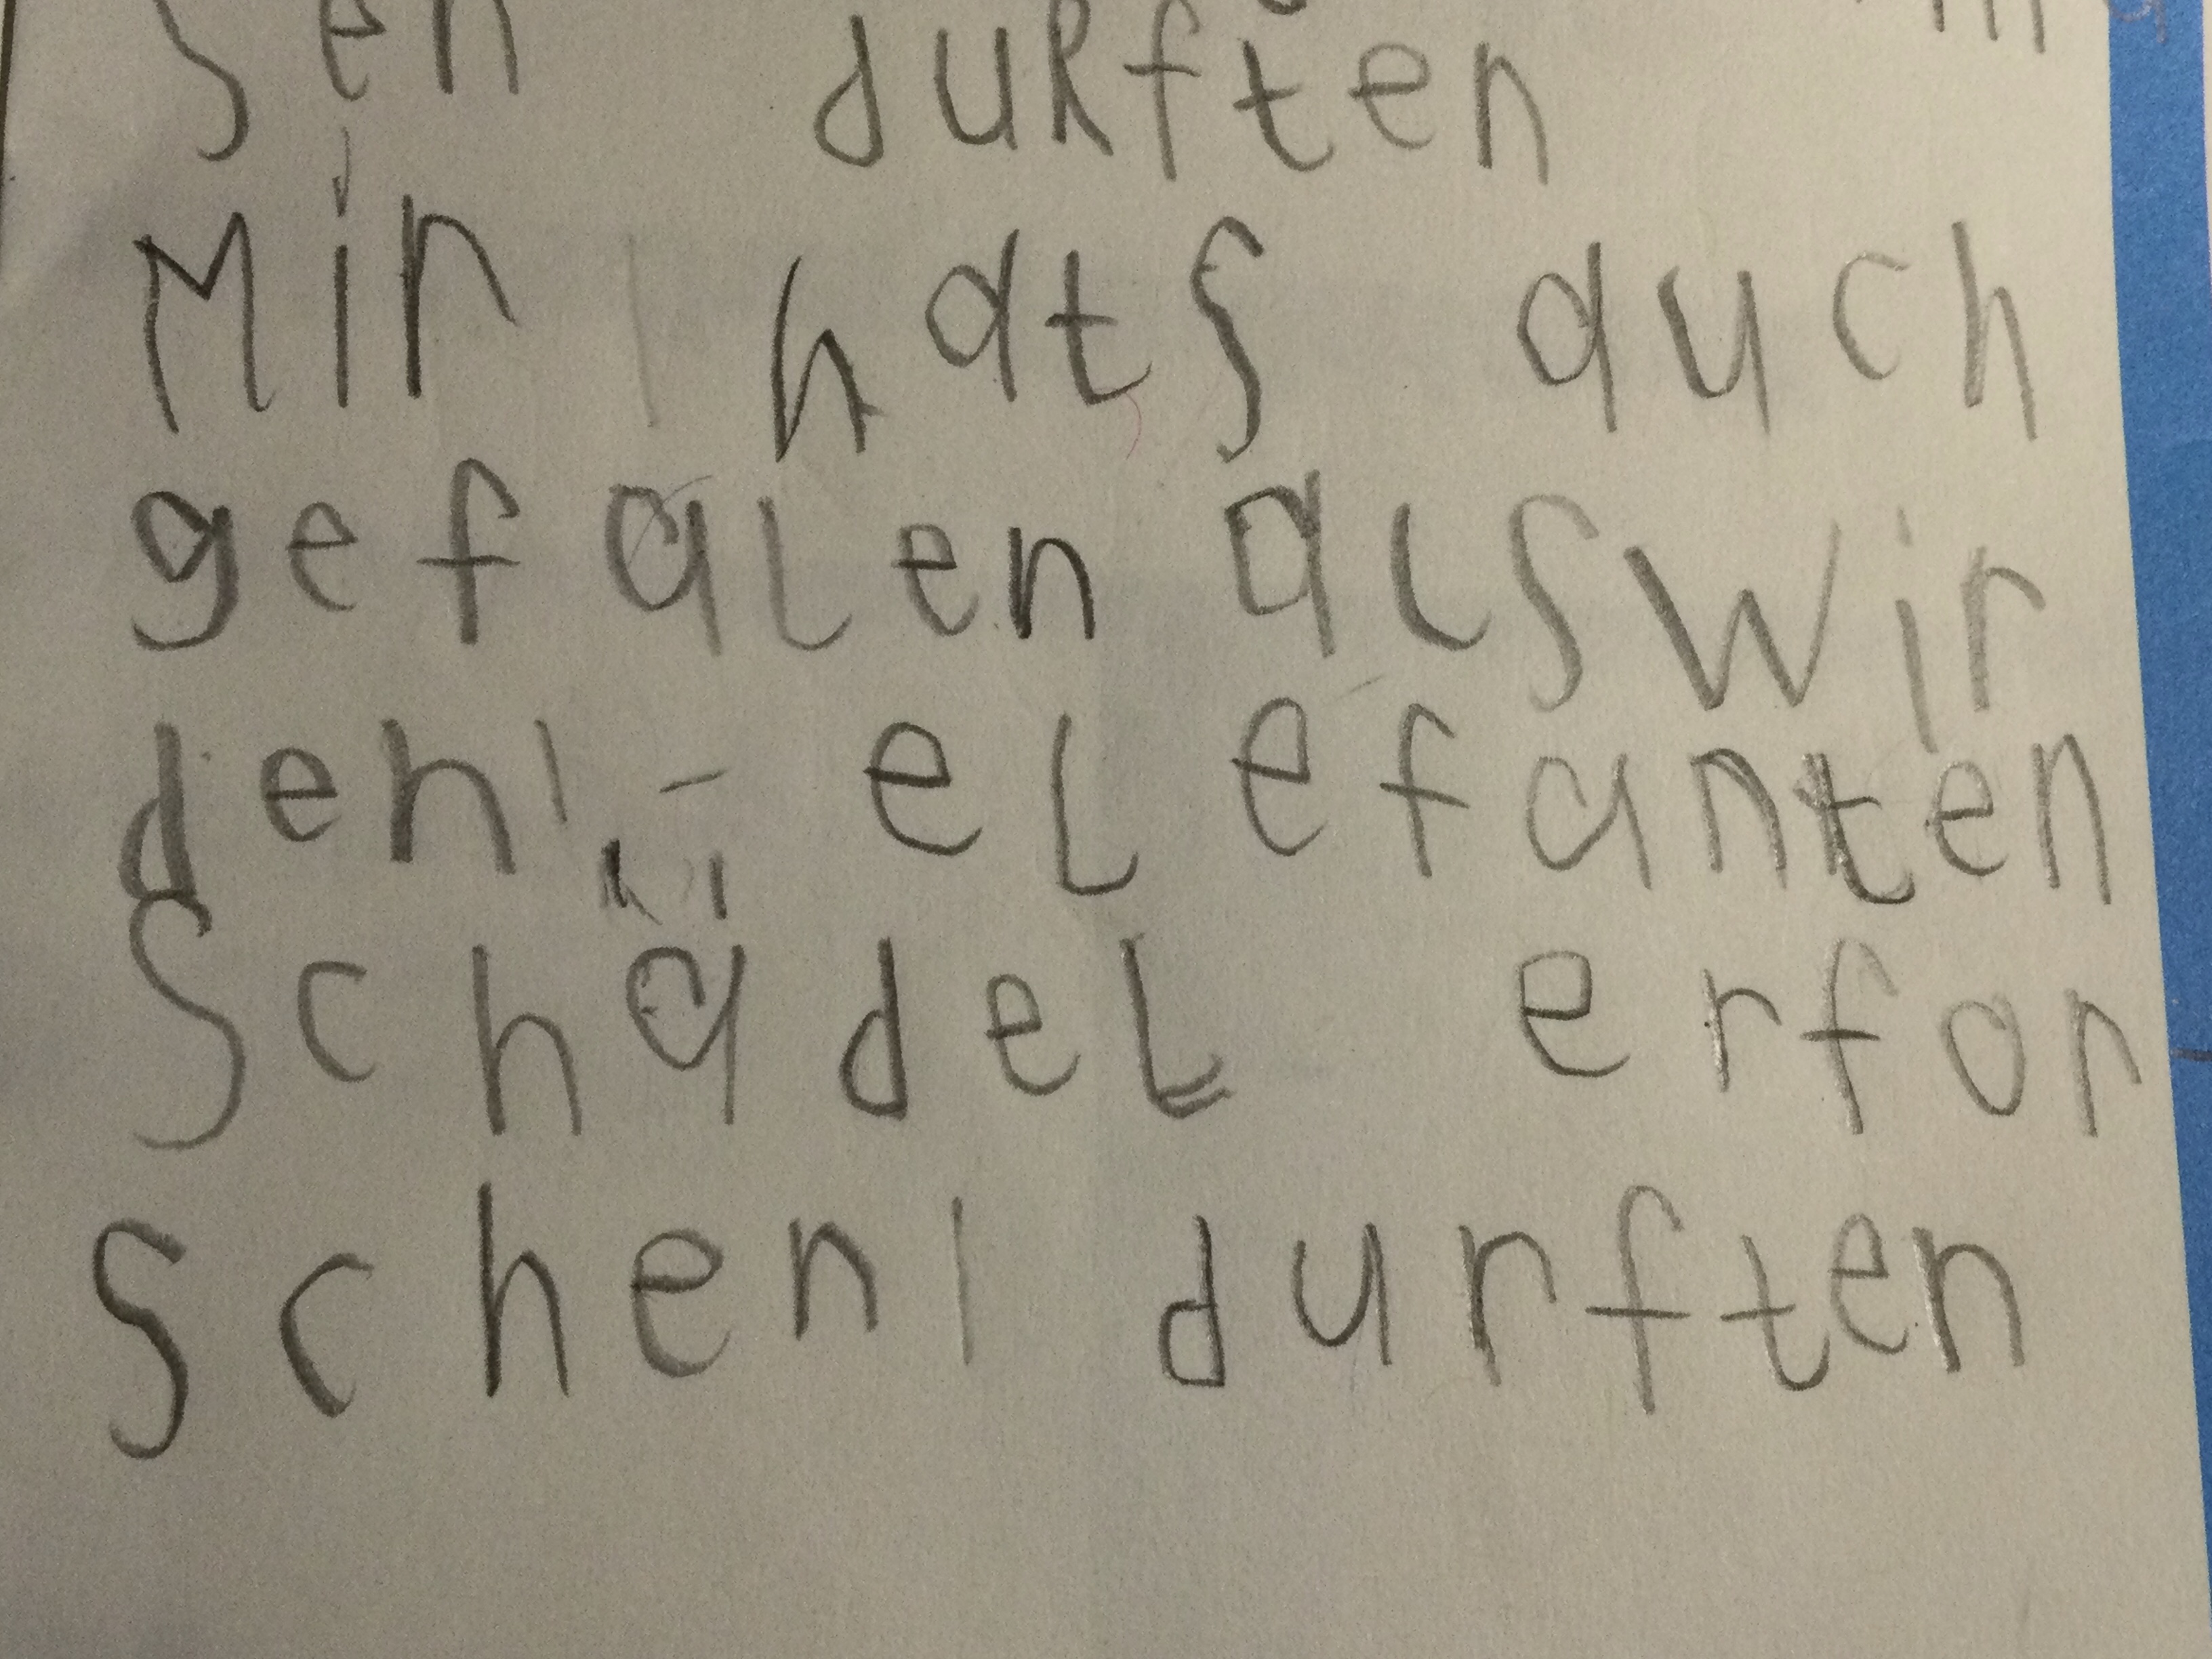 sen durften
Mir hats auch
gefalen als wir
den elefanten
Schädel erfor
schen durften